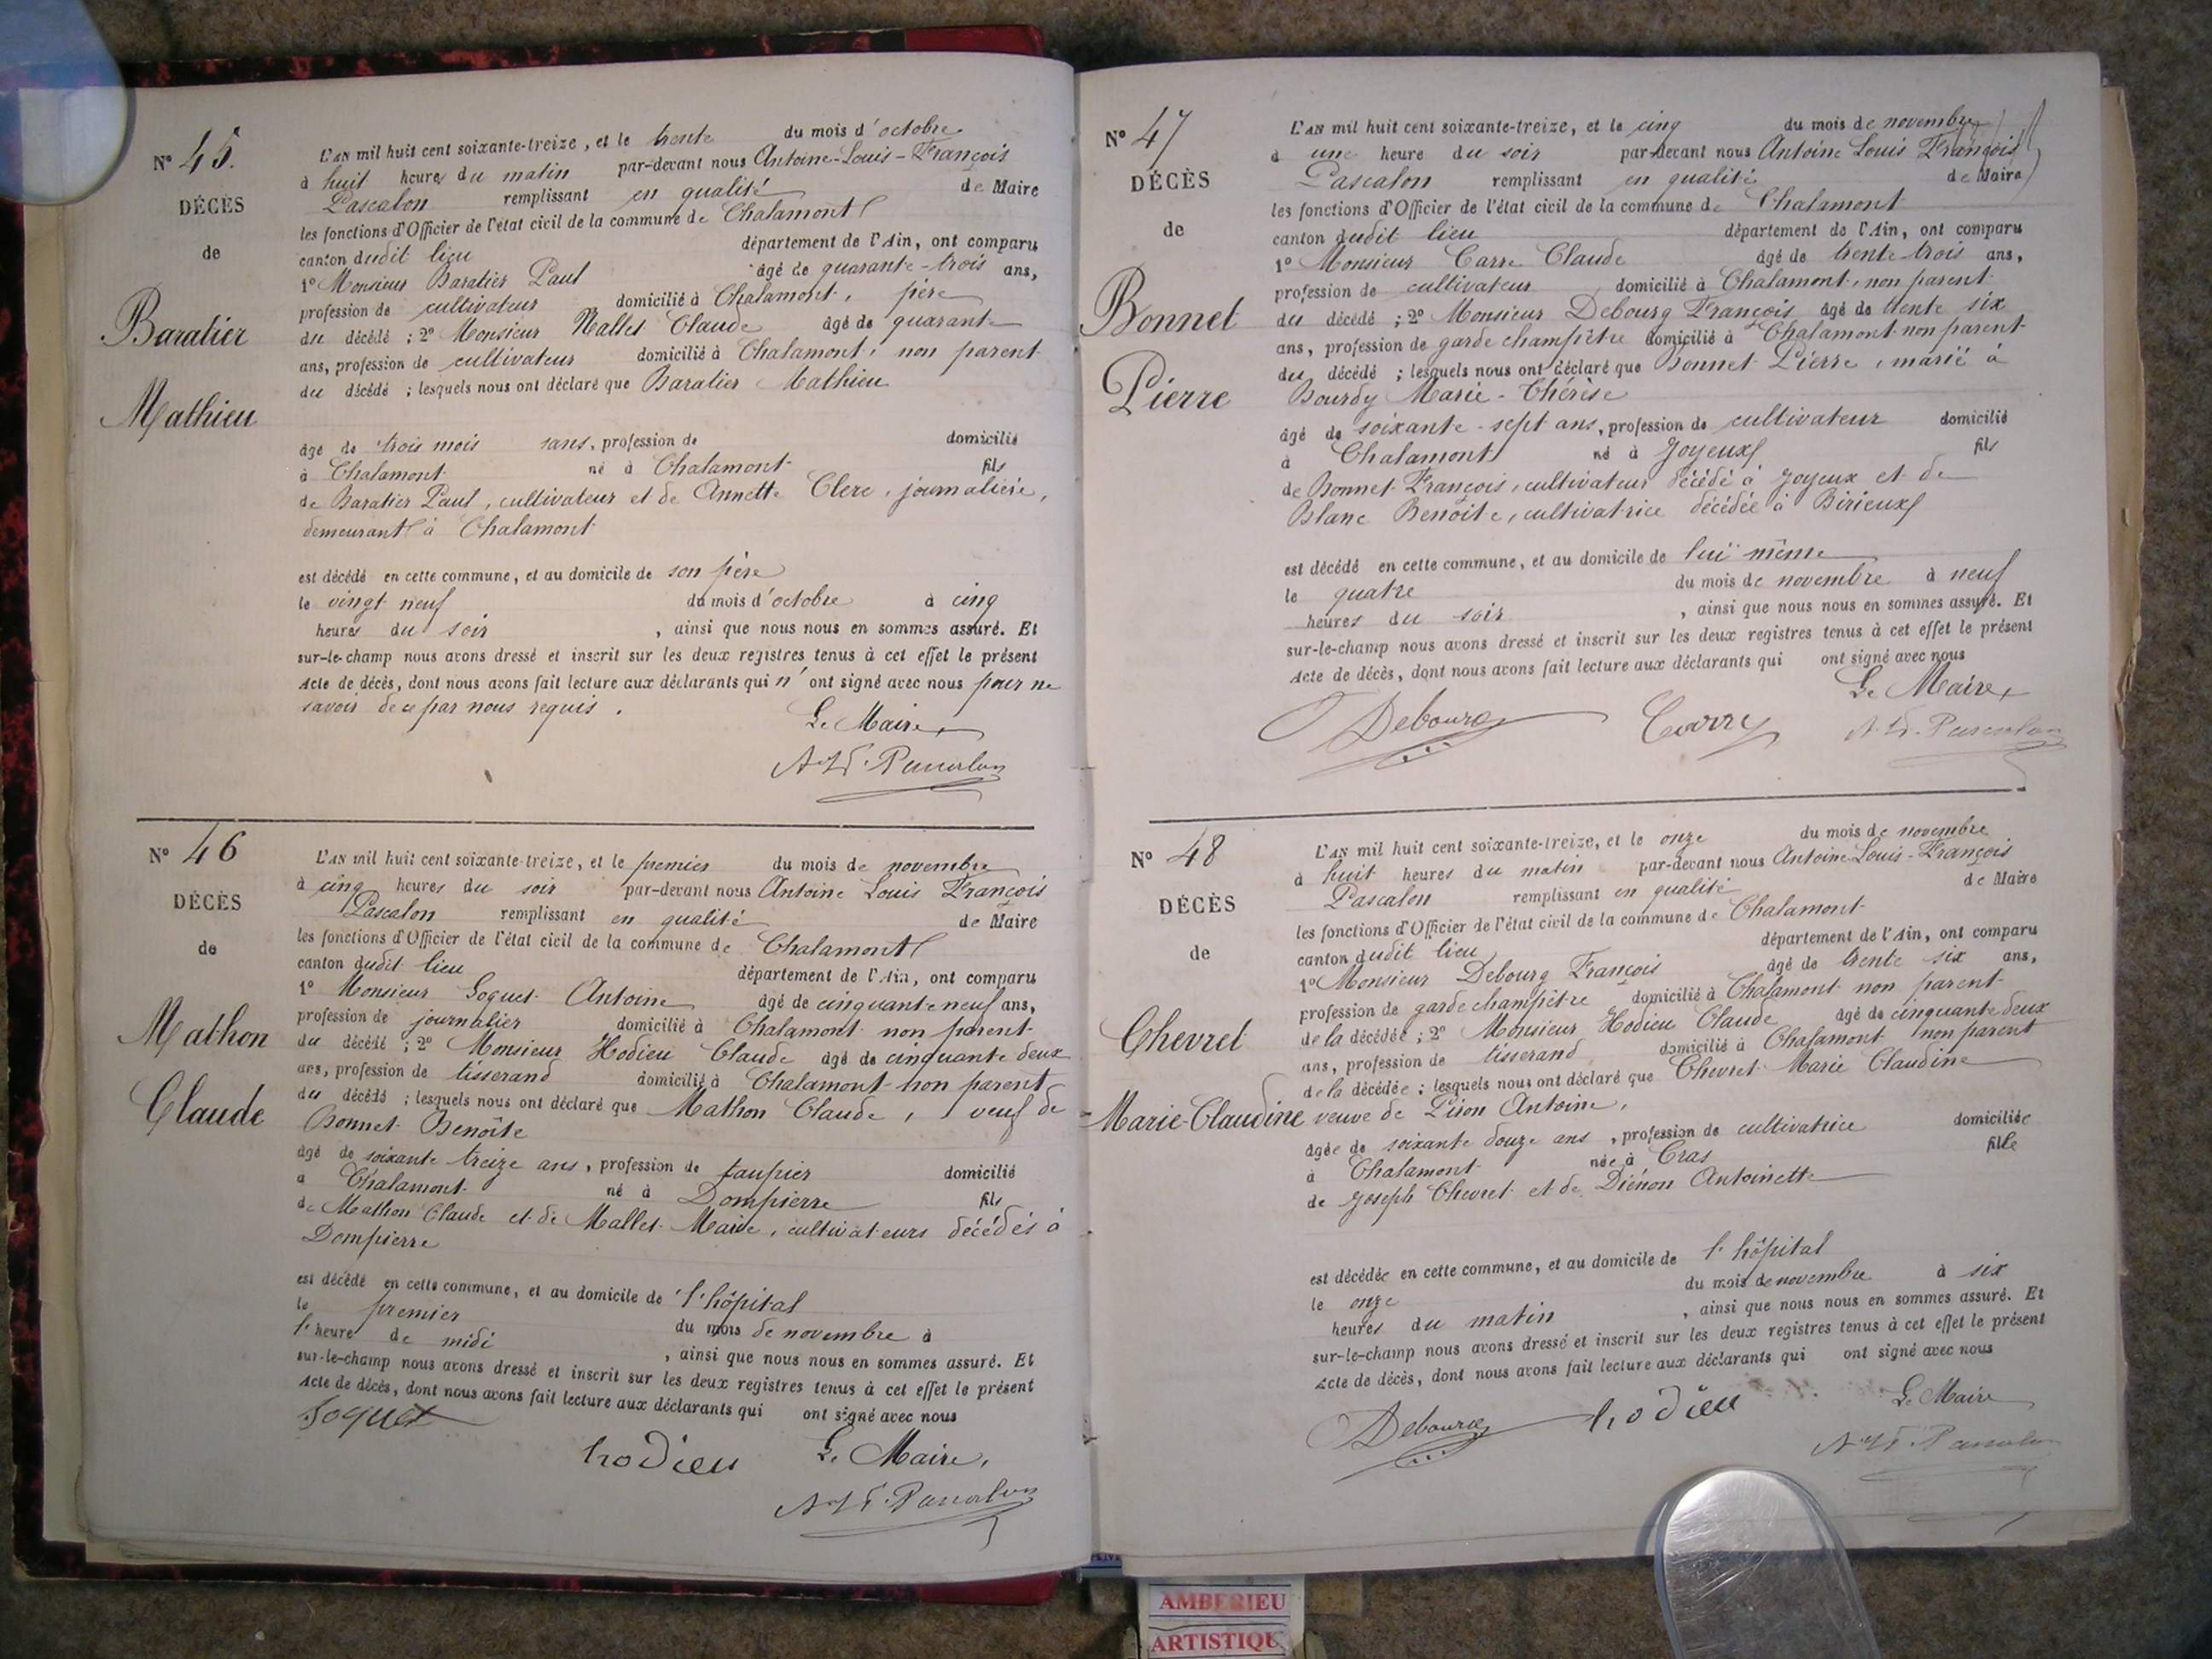 N° 45.
DÉCÈS
de
Baratier
Mathieu
L'AN mil huit cent soixante-treize, et le trente du mois d'octobre
à huit heures du matin par-devant nous Antoine-Louis-François
Pascalon remplissant en qualité de Maire
les fonctions d'Officier de l'état civil de la commune de Chalamont
canton dudit lieu département de l'Ain, ont comparu
1° Monsieur Baratier Paul âgé de quarante-trois ans,
profession de cultivateur domicilié à Chalamont, père
du décédé ; 2° Monsieur Nallet Claude âgé de quarante
ans, profession de cultivateur domicilié à Chalamont, non parent
du décédé ; lesquels nous ont déclaré que Baratier Mathieu
âgé de trois mois sans, profession de domicilié
à Chalamont né à Chalamont fils
de Baratier Paul, cultivateur et de Annette Clerc, journalière,
demeurant à Chalamont
est décédé en cette commune, et au domicile de son père
le vingt neuf du mois d'octobre à cinq
heures du soir, ainsi que nous nous en sommes assuré. Et
sur-le-champ nous avons dressé et inscrit sur les deux registres tenus à cet effet le présent
Acte de décès, dont nous avons fait lecture aux déclarants qui n'ont signé avec nous pour ne
savoir de ce par nous requis.
Le Maire,
A.L.F. Pascalon
N° 46
DÉCÈS
de
Mathon
Claude
L'AN mil huit cent soixante-treize, et le premier du mois de novembre
à cinq heures du soir par-devant nous Antoine Louis François
Pascalon remplissant en qualité de Maire
les fonctions d'Officier de l'état civil de la commune de Chalamont
canton dudit lieu département de l'Ain, ont comparu
1° Monsieur Soquet Antoine âgé de cinquante neuf ans,
profession de journalier domicilié à Chalamont non parent
du décédé ; 2° Monsieur Hodieu Claude âgé de cinquante deux
ans, profession de tisserand domicilié à Chalamont non parent
du décédé ; lesquels nous ont déclaré que Mathon Claude, veuf de
Bonnet Benoîte
âgé de soixante treize ans, profession de taupier domicilié
à Chalamont né à Dompierre fils
de Mathon Claude et de Mallet Marie, cultivateurs décédés à
Dompierre
est décédé en cette commune, et au domicile de l'hôpital
le premier du mois de novembre à
l'heure de midi, ainsi que nous nous en sommes assuré. Et
sur-le-champ nous avons dressé et inscrit sur les deux registres tenus à cet effet le présent
Acte de décès, dont nous avons fait lecture aux déclarants qui ont signé avec nous
Soquet
hodieu Le Maire,
A.L.F. Pascalon
N° 47
DÉCÈS
de
Bonnet
Pierre
L'AN mil huit cent soixante-treize, et le cinq du mois de novembre
à une heure du soir par-devant nous Antoine Louis François
Pascalon remplissant en qualité de Maire
les fonctions d'Officier de l'état civil de la commune de Chalamont
canton dudit lieu département de l'Ain, ont comparu
1° Monsieur Carre Claude âgé de trente trois ans,
profession de cultivateur domicilié à Chalamont, non parent
du décédé ; 2° Monsieur Debourg François âgé de trente six
ans, profession de garde champêtre domicilié à Chalamont non parent
du décédé ; lesquels nous ont déclaré que Bonnet Pierre, marié à
Bourdy Marie-Thérèse
âgé de soixante-sept ans, profession de cultivateur domicilié
à Chalamont né à Joyeux fils
de Bonnet François, cultivateur décédé à Joyeux et de
Blanc Benoite, cultivatrice décédée à Birieux
est décédé en cette commune, et au domicile de lui même
le quatre du mois de novembre à neuf
heures du soir, ainsi que nous nous en sommes assuré. Et
sur-le-champ nous avons dressé et inscrit sur les deux registres tenus à cet effet le présent
Acte de décès, dont nous avons fait lecture aux déclarants qui ont signé avec nous
Le Maire,
Debourg Carre A.L.F. Pascalon
N° 48
DÉCÈS
de
Chevret
Marie-Claudine
L'AN mil huit cent soixante-treize, et le onze du mois de novembre
à huit heures du matin par-devant nous Antoine-Louis-François
Pascalon remplissant en qualité de Maire
les fonctions d'Officier de l'état civil de la commune de Chalamont
canton dudit lieu département de l'Ain, ont comparu
1° Monsieur Debourg François âgé de trente six ans,
profession de garde champêtre domicilié à Chalamont non parent
de la décédée ; 2° Monsieur Hodieu Claude âgé de cinquante deux
ans, profession de tisserand domicilié à Chalamont non parent
de la décédée ; lesquels nous ont déclaré que Chevret Marie Claudine
veuve de Pison Antoine,
âgée de soixante douze ans, profession de cultivatrice domiciliée
à Chalamont née à Cras fille
de Joseph Chevret et de Diénon Antoinette
est décédée en cette commune, et au domicile de l'hôpital
le onze du mois de novembre à six
heures du matin, ainsi que nous nous en sommes assuré. Et
sur-le-champ nous avons dressé et inscrit sur les deux registres tenus à cet effet le présent
Acte de décès, dont nous avons fait lecture aux déclarants qui ont signé avec nous
Le Maire
Debourg hodieu A.L.F. Pascalon
AMBERIEU
ARTISTIQU